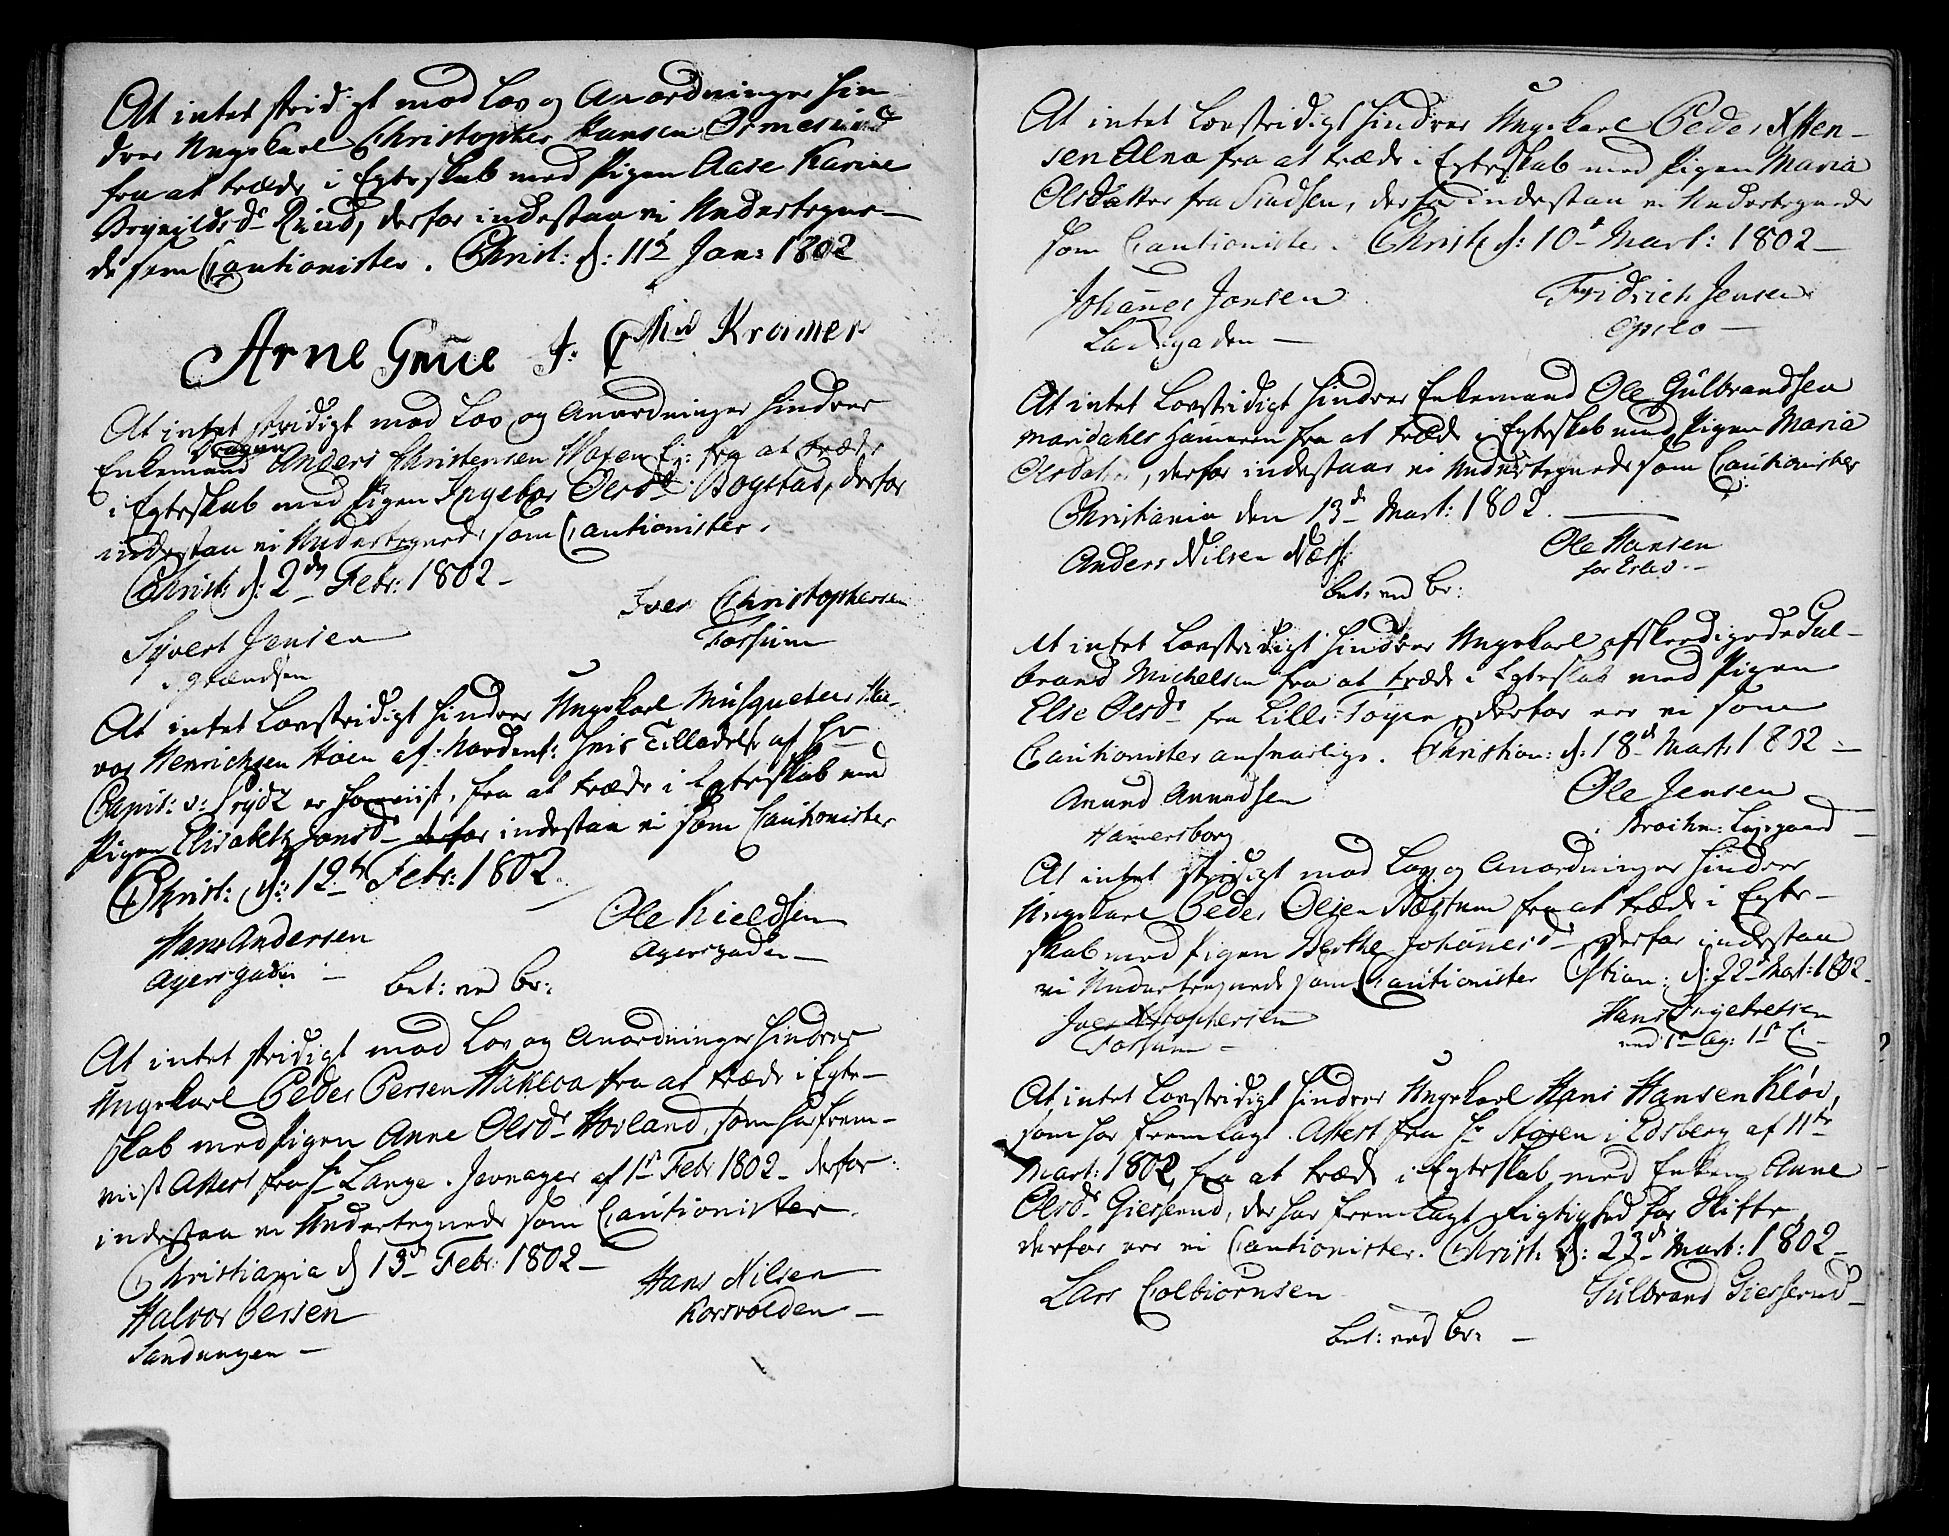 At intet stridigt mod Lov og Anordninger hin-
drer Ungekarl Christopher Hansen Ormesund
fra at træde i Egteskab med Pigen Aase Karine
Brynildsdr Ruud, derfor indestaa vi Undertegne-
de som Cautionister. Christ: d: 11te Jan: 1802
Arne Grüe J: Kramer
At intet stridigt mod Lov og Anordninger hindrer
Dragon
Enkemand Anders Christensen Waxen Ei: fra at træde
i Egteskab med Pigen Ingebor Olsdr Bogstad, derfor
indestaa vi Undertegnede som Cautionister.
Christ: d: 2den Febr: 1802 -
Syvert Jensen Iver Christophersen
Fossum
At intet Lovstridigt hindrer Ungekarl Musqueteer Hal-
vor Henrichsen Hoen af: Nordenf: hvis Tilladelse af Hr
Capit: v: Frydz er foreviist, fra at træde i Egteskab med
Pigen Elisabeth Jonsdr derfor indestaa vi som Cautionister
Christ: d: 12te Febr: 1802.
Hans Andersen Ole Kieldsen
Agersgaden - Agersgaden -
bet: ved br:
At intet stridigt mod Lov og Anordninger hindrer
Ungekarl Peder Persen Hakloa fra at træde i Egte-
skab med Pigen Anne Olsdr Hovland, som har frem-
viist Attest fra Hr Lange i Jevnager af 1st Febr 1802 - derfor
indestaa vi Undertegnede som Cautionister.
Christiania d 13de Febr: 1802 -
Halvor Persen Hans Nilsen
Sandungen - Korsvolden -
At intet Lovstridigt hindrer Ungekarl Peder Hen-
sen Alna fra at træde i Egteskab med Pigen Maria
Olsdatter fra Sindsen, derfor indestaa vi Undertegnede
som Cautionister. Christ: d: 10de Mart: 1802 -
Johannes Jonsen Fridrich Jensen
Lakkegaden - Opslo -
At intet Lovstridigt hindrer Enkemand Ole Gulbrandsen
Maridahls Hameren fra at træde i Egteskab med Pigen Maria
Olsdatter, derfor indestaar vi Undertegnede som Cautionister
Christiania den 13de Mart: 1802.
Anders Nilsen Næss: Ole Hansen
bet: ved br:
At intet Lovstridigt hindrer Ungekarl afskedigede Gul-
brand Michelsen fra at træde i Egteskab med Pigen
Else Olsdr fra Lille Tøyen, derfor ere vi som
Cautionister ansvarlige. Christian: d: 18de Mart: 1802 -
Anund Anundsen Ole Jensen
Hamersborg
At intet stridigt mod Lov og Anordninger hindrer
Ungekarl Peder Olsen Røgtum fra at træde i Egte-
skab med Pigen Berthe Johannesdr derfor indestaa
vi Undertegnede som Cautionister Christian: d: 22de Mart: 1802
Iver Xstophersen Hans Ingebretsen
Fossum -
At intet Lovstridigt hindrer Ungekarl Hans Hansen Kløv,
som har fremlagt Attest fra Hr Stoxen i Edsberg af 11te
Mart: 1802, fra at træde i Egteskab med Enken Anne
Olsdr Giesserud, der har fremlagt Rigtighed for Skifte,
derfor ere vi Cautionister. Christ: d: 23de Mart: 1802 -
Lars Colbiørnsen Gulbrand Giesserud -
bet: ved br: -